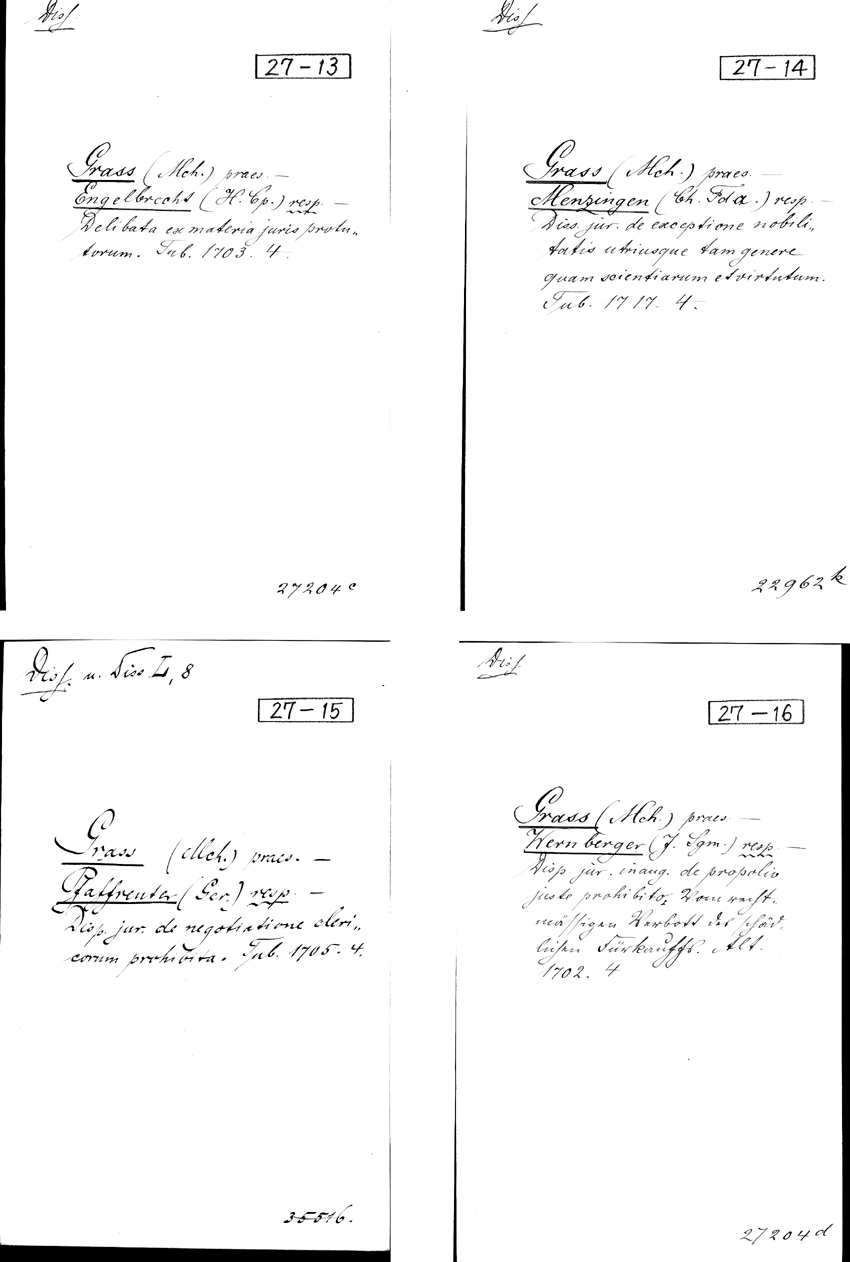 Diss.
27-13
Grass (Mch.) praes. —
Engelbrecht (H. Cp.) resp. —
Delibata ex materia juris protu„
torum. Tub. 1703. 4.
27204 c
Diss.
27-14
Grass (Mch.) praes. —
Menzingen (Ch. Fd a.) resp. —
Diss. jur. de exceptione nobili„
tatis utriusque tam genere
quam scientiarum et virtutum.
Tub. 1717. 4.
22962 k
Diss. u. Diss. L, 8
27-15
Grass (Mch.) praes. —
Pfaffreuter (Ger.) resp. —
Disp. jur. de negotiatione cleri„
corum prohibita. Tub. 1705. 4.
35516.
Diss.
27-16
Grass (Mch.) praes. —
Wernberger (J. Sgm.) resp. —
Disp. jur. inaug. de propolio
juste prohibito, Vom recht-
mässigen Verbott des schäd-
lichen Fürkauffs. Alt.
1702. 4
27204 d